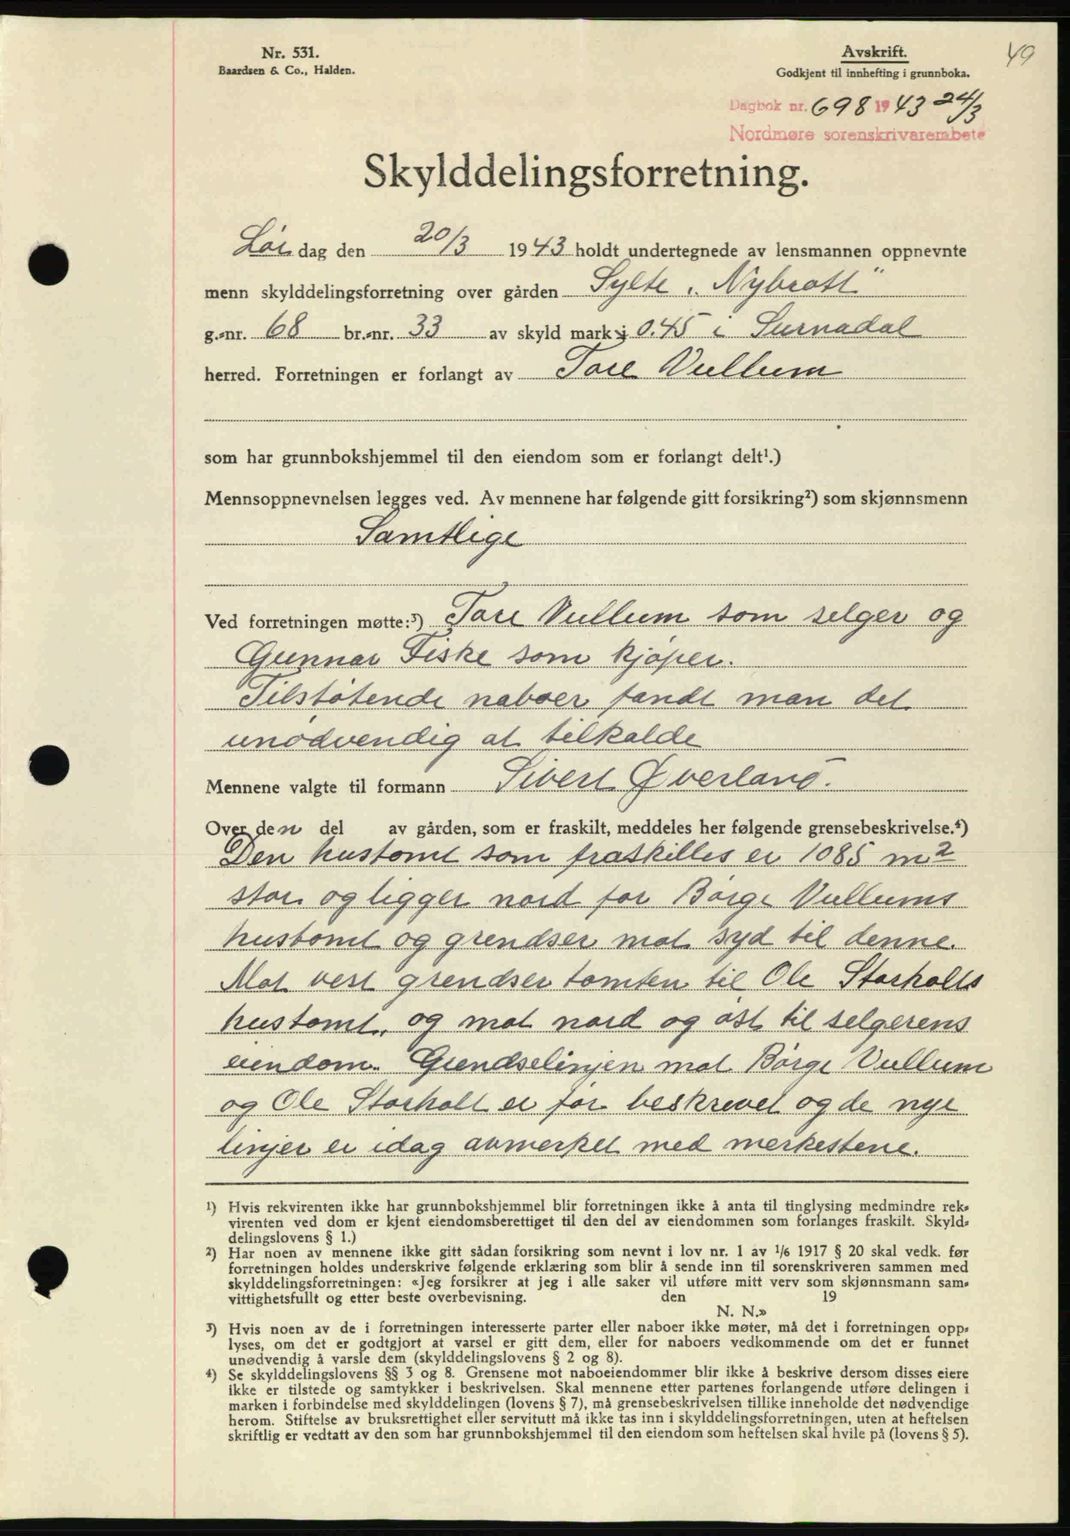 Nr. 531.
Baardsen & Co., Halden.
Avskrift.
Godkjent til innhefting i grunnboka.
49
Dagbok nr. 698 1943 24/3
Nordmøre sorenskrivarembete
Skylddelingsforretning.
Lør dag den 20/3 1943 holdt undertegnede av lensmannen oppnevnte
menn skylddelingsforretning over gården Sylte „Nybrott"
g.-nr. 68 br.-nr. 33 av skyld mark 0.45 i Surnadal
herred. Forretningen er forlangt av Tore Vullum
som har grunnbokshjemmel til den eiendom som er forlangt delt¹.)
Mennsoppnevnelsen legges ved. Av mennene har følgende gitt forsikring²) som skjønnsmenn
Samtlige
Ved forretningen møtte:³) Tore Vullum som selger og
Gunnar Fiske som kjøper.
Tilstøtende naboer fandt man det
unødvendig at tilkalde
Mennene valgte til formann Sivert Øverland.
Over den del av gården, som er fraskilt, meddeles her følgende grensebeskrivelse.⁴)
Den hustomt som fraskilles er 1085 m2
stor og ligger nord for Børge Vullums
hustomt og grendser mot syd til denne.
Mot vest grendser tomten til Ole Storholts
hustomt, og mot nord og øst til selgerens
eiendom. Grendselinjen mot Børge Vullum
og Ole Storholt er før beskrevet og de nye
linjer er idag avmerket med merkestene.
¹) Hvis rekvirenten ikke har grunnbokshjemmel blir forretningen ikke å anta til tinglysing medmindre rek-
virenten ved dom er kjent eiendomsberettiget til den del av eiendommen som forlanges fraskilt. Skyld-
delingslovens § 1.)
²) Har noen av mennene ikke gitt sådan forsikring som nevnt i lov nr. 1 av 1/6 1917 § 20 skal vedk. før
forretningen holdes underskrive følgende erklæring som blir å sende inn til sorenskriveren sammen med
skylddelingsforretningen: «Jeg forsikrer at jeg i alle saker vil utføre mitt verv som skjønnsmann sam-
vittighetsfullt og etter beste overbevisning. den 19
N. N.»
³) Hvis noen av de i forretningen interesserte parter eller naboer ikke møter, må det i forretningen opp-
lyses, om det er godtgjort at varsel er gitt dem, eller for naboers vedkommende om det er funnet
unødvendig å varsle dem (skylddelingslovens § 2 og 8).
⁴) Se skylddelingslovens §§ 3 og 8. Grensene mot naboeiendommer blir ikke å beskrive dersom disses eiere
ikke er tilstede og samtykker i beskrivelsen. Skal mennene etter partenes forlangende utføre delingen i
marken i forbindelse med skylddelingen (lovens § 7), må grensebeskrivelsen tillike inneholde det nødvendige
herom. Stiftelse av bruksrettighet eller servitutt må ikke tas inn i skylddelingsforretningen, uten at heftelsen
skriftlig er vedtatt av den som har grunnbokshjemmel til den eiendom som heftelsen skal hvile på (lovens § 5).